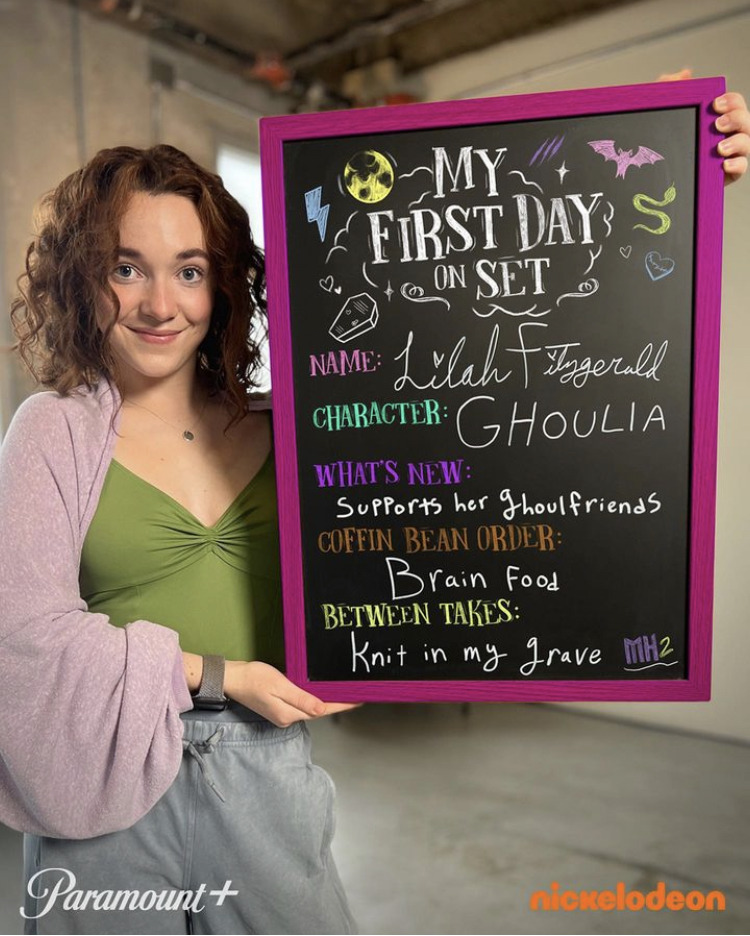 MY
FIRST DAY
ON SET
NAME: Lilah Fitzgerald
CHARACTER: GHOULIA
WHAT'S NEW:
Supports her ghoulfriends
COFFIN BEAN ORDER:
Brain Food
BETWEEN TAKES:
Knit in my grave
MH2
Paramount+
nickelodeon